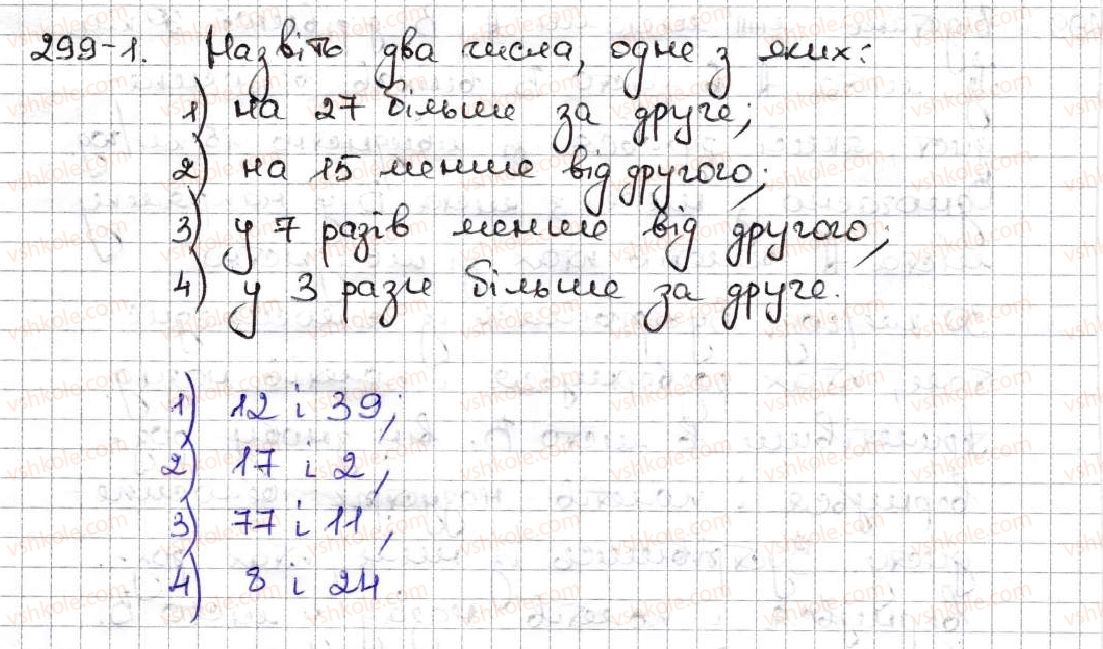 299-1. Назвіть два числа, одне з яких:
1) на 27 більше за друге;
2) на 15 менше від другого;
3) у 7 разів менше від другого;
4) у 3 рази більше за друге.
1) 12 і 39;
2) 17 і 2;
3) 77 і 11;
4) 8 і 24